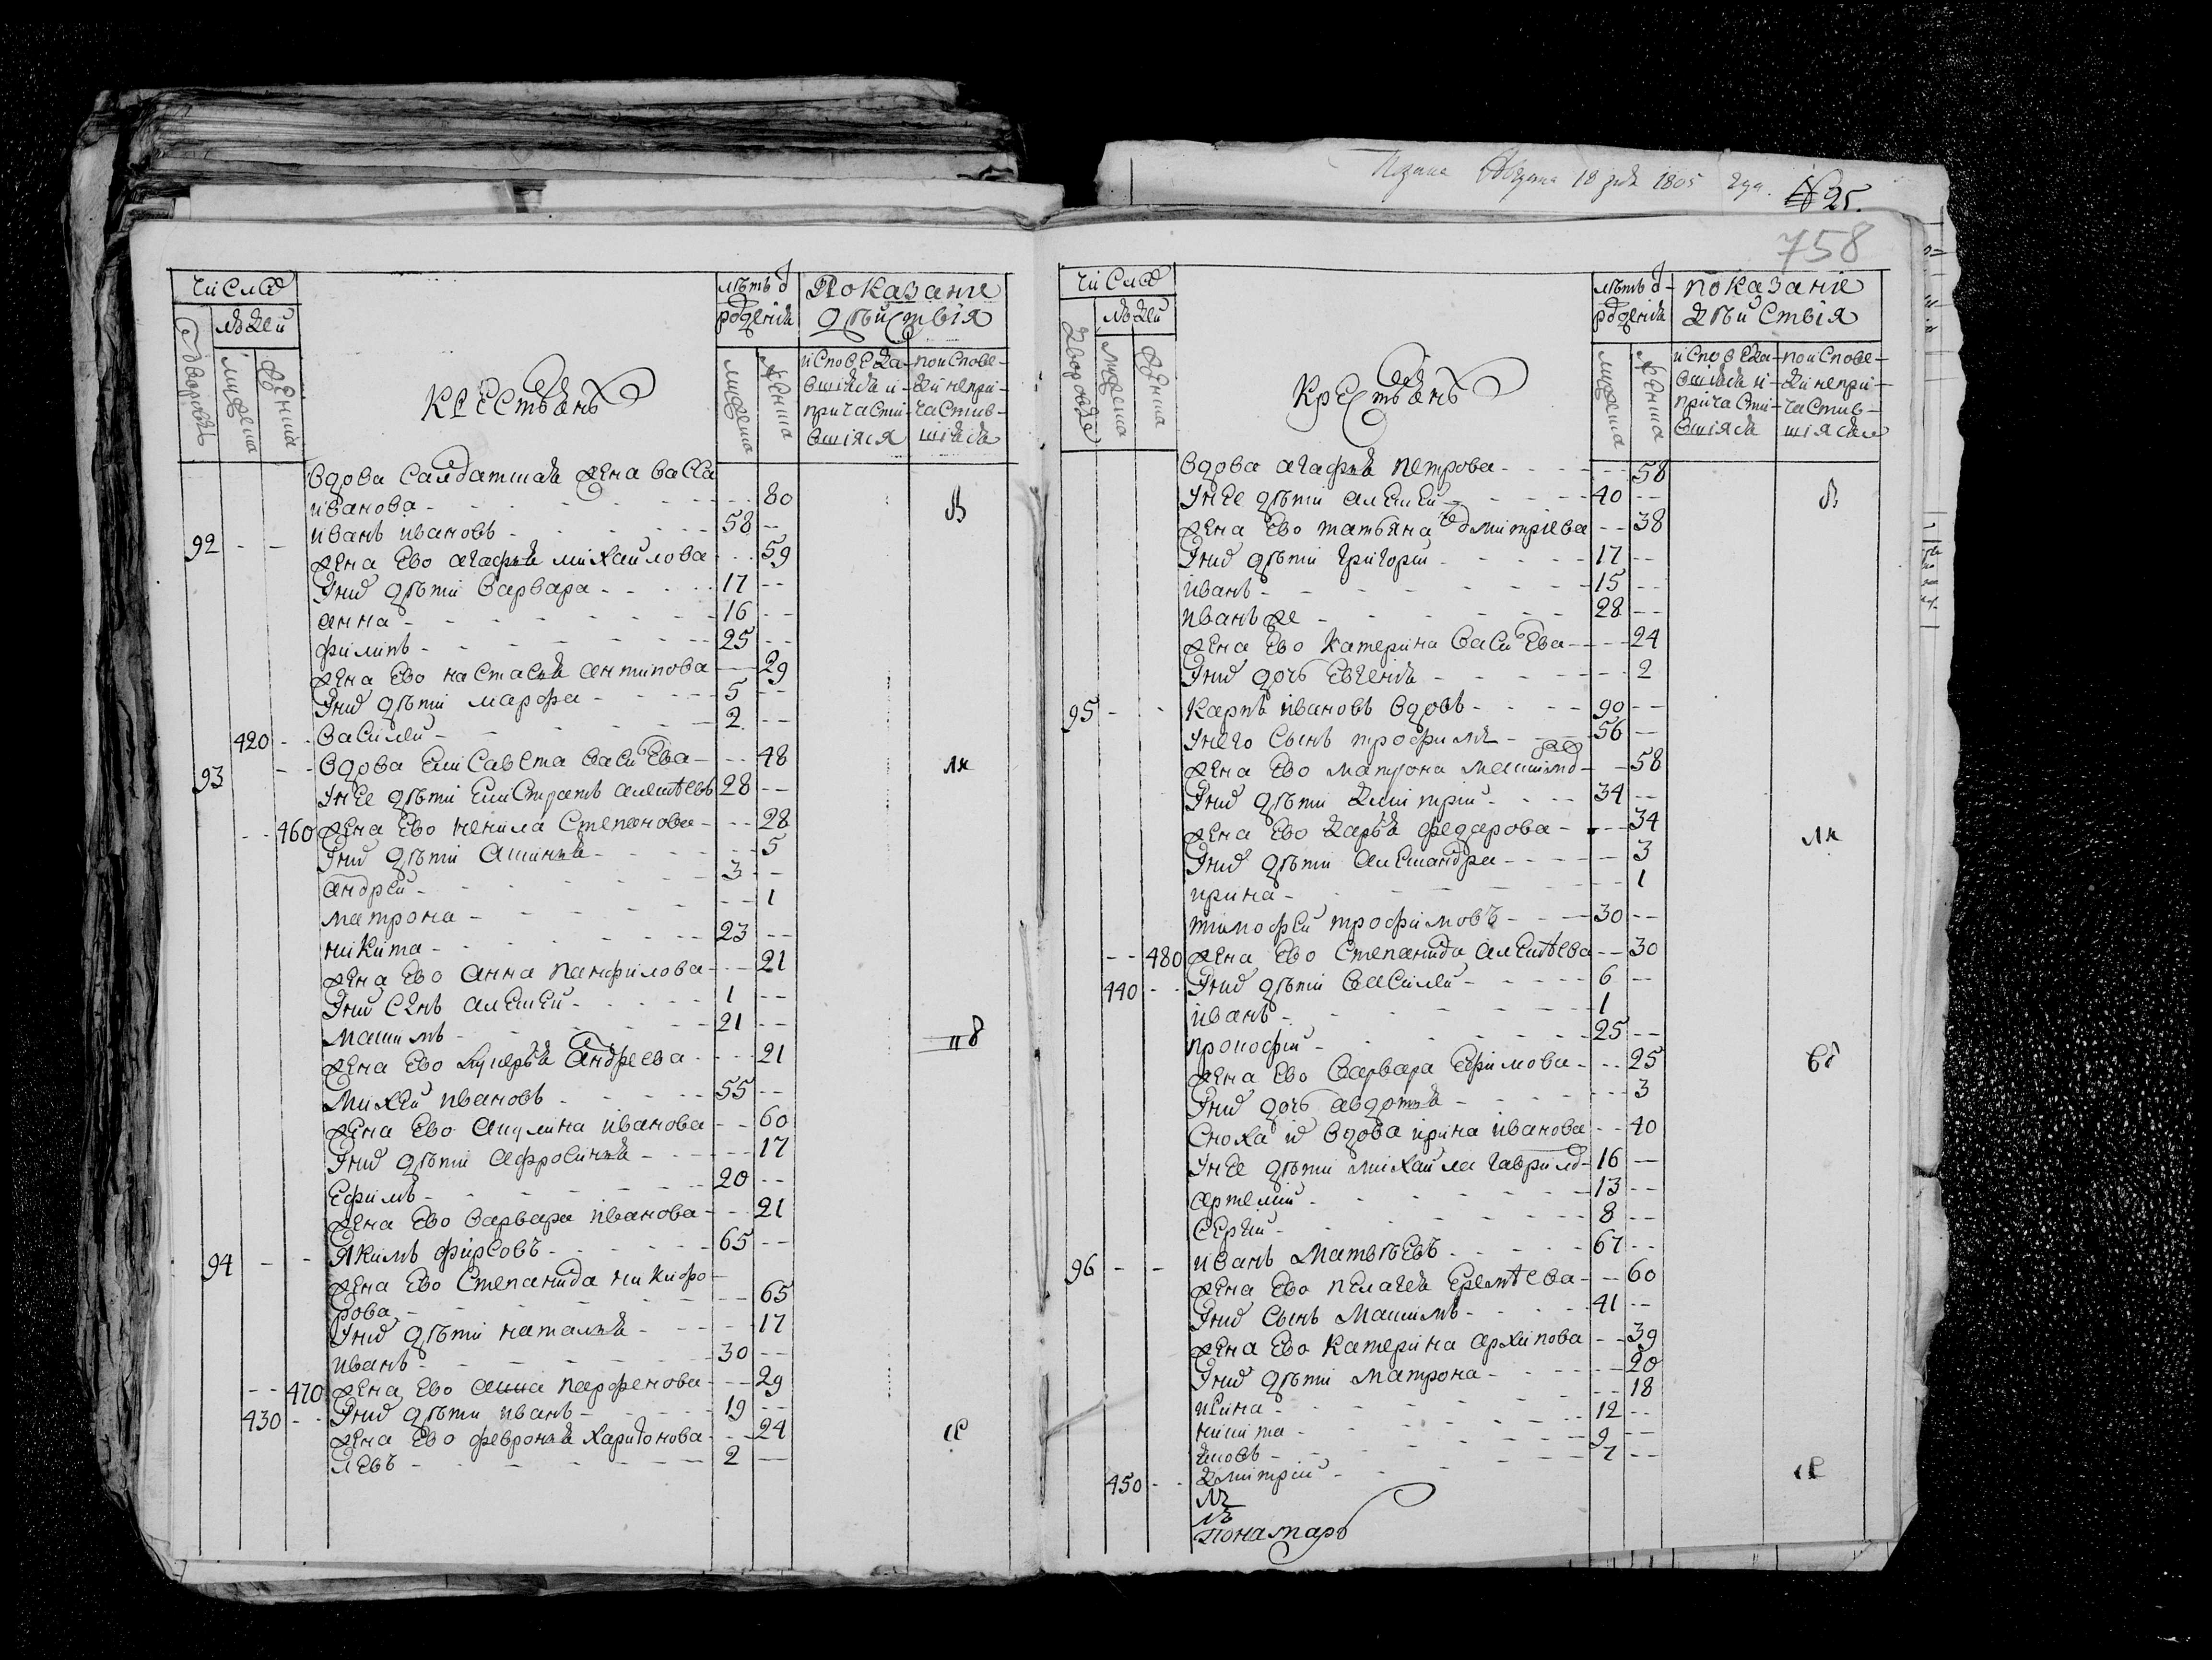 Подана Августа 18 дня 1805 года. № 25.
758
число
людей
дворовъ
мужеска
женска
Крестьянъ
лѣтъ о
рожденiя
мужеска
женска
Показанiе
дѣйствiя
исповеда-
вшiяся и
причасти-
вшiяся
поиспове-
ди непри-
частив-
шiяся
Вдова Салдатская жена Васса
иванова - - - 80
92 - - иванъ ивановъ - - - 58 --
жена Ево агафья михаилова - - - 59
Уних дѣти варвара - - - 17 --
анна - - - 16 --
филипъ - - - 25 --
жена Ево настасья антипова - - - 29
Уних дѣти марфа - - - 5 --
420 - - василей - - - 2 --
93 - - вдова Елисавета васильева - - - 48
Унее дѣти Елистратъ алексѣевъ 28 --
- - 460 жена Ево ненила Степанова - - - 28
Уних дѣти Аксинья - - - 5
андрей - - - 3 --
матрона - - - 1
никита - - - 23 --
жена Ево анна панфилова - - - 21
Уних Сынъ алексей - - - 1 --
максимъ - - - 21 --
жена Ево лукерья андреева - - - 21
михей ивановъ - - - 55 --
жена Ево акулина иванова - - 60
Уних дѣти афросинья - - - 17
Ефимъ - - - 20 --
жена Ево варвара иванова - - - 21
94 - - Якимъ фирсовъ - - - 65 --
жена Ево Степанида никифо-
рова - - - 65
Уних дѣти наталья - - - 17
иванъ - - - 30 --
- - 470 жена Ево анна парфенова - - - 29
430 - - Уних дѣти иванъ - - - 19 --
жена Ево февронья харитонова - - - 24
левъ - - - 2 --
число
людей
дворовъ
мужеска
женска
Крестьянъ
лѣтъ о
рожденiя
мужеска
женска
показанiе
дѣйствiя
исповеда-
вшiяся и
причасти-
вшiяся
поиспове-
ди непри-
частив-
шiяся
вдова агафья петрова - - - 58
Унее дѣти алексей - - - 40 --
жена Ево татьяна дмитриева - - 38
Уних дѣти григорий - - - 17 --
иванъ - - - 15 --
иванъ же - - - 28 --
жена Ево катерина васильева - - - 24
Уних дочь Евгения - - - 2
95 - - карпъ ивановъ вдовъ - - - 90 --
Унего Сынъ трофимъ - - - 56 --
жена Ево матрона - - 58
Уних дѣти дмитрий - - - 34 --
жена Ево дарья федарова - - - 34
Уних дѣти александра - - - 3
ирина - - - 1
тимофей трофимовъ - - - 30 --
- - 480 жена Ево Степанида алексѣева - - 30
440 - - Уних дѣти василей - - - 6 --
иванъ - - - 1
прокофий - - - 25 --
жена Ево варвара Ефимова - - - 25
Уних дочь авдотья - - - 3
Сноха их вдова ирина иванова - - 40
Унее дѣти михаила гаврилов 16 --
артемий - - - 13 --
Сергий - - - 8 --
96 - - иванъ матвѣевъ - - - 67 --
жена Ево пелагея Еремѣева - - 60
Уних Сынъ максимъ - - - 41 --
жена Ево катерина архипова - - 39
Уних дѣти матрона - - - 20
- - - 18
никита - - - 12 --
- - - 9 --
450 - - дмитрий - - - 7 --
понамарь